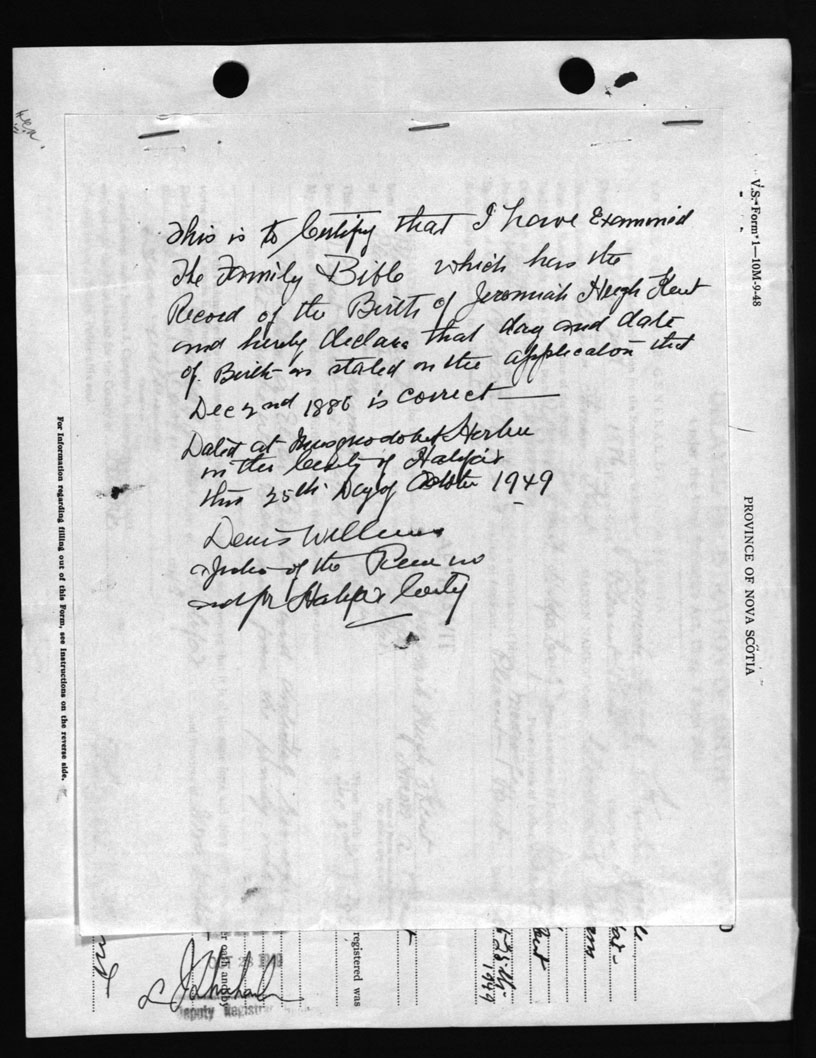 This is to Certify that I have Examined
The Family Bible which has the
Record of the Birth of Jeremiah Hugh Kent
and hereby declare that day and date
of Birth as stated on the application that
Dec 2nd 1886 is correct
Dated at Musquodoboit Harbor
in the County of Halifax
this 25th Day of October 1949
Denis Williams
Justice of the Peace in
and for Halifax County
V.S. Form 1—10M-9-48
PROVINCE OF NOVA SCOTIA
For Information regarding filling out of this Form, see Instructions on the reverse side.
registered was
OCT 28 1949
Deputy Registrar
1949